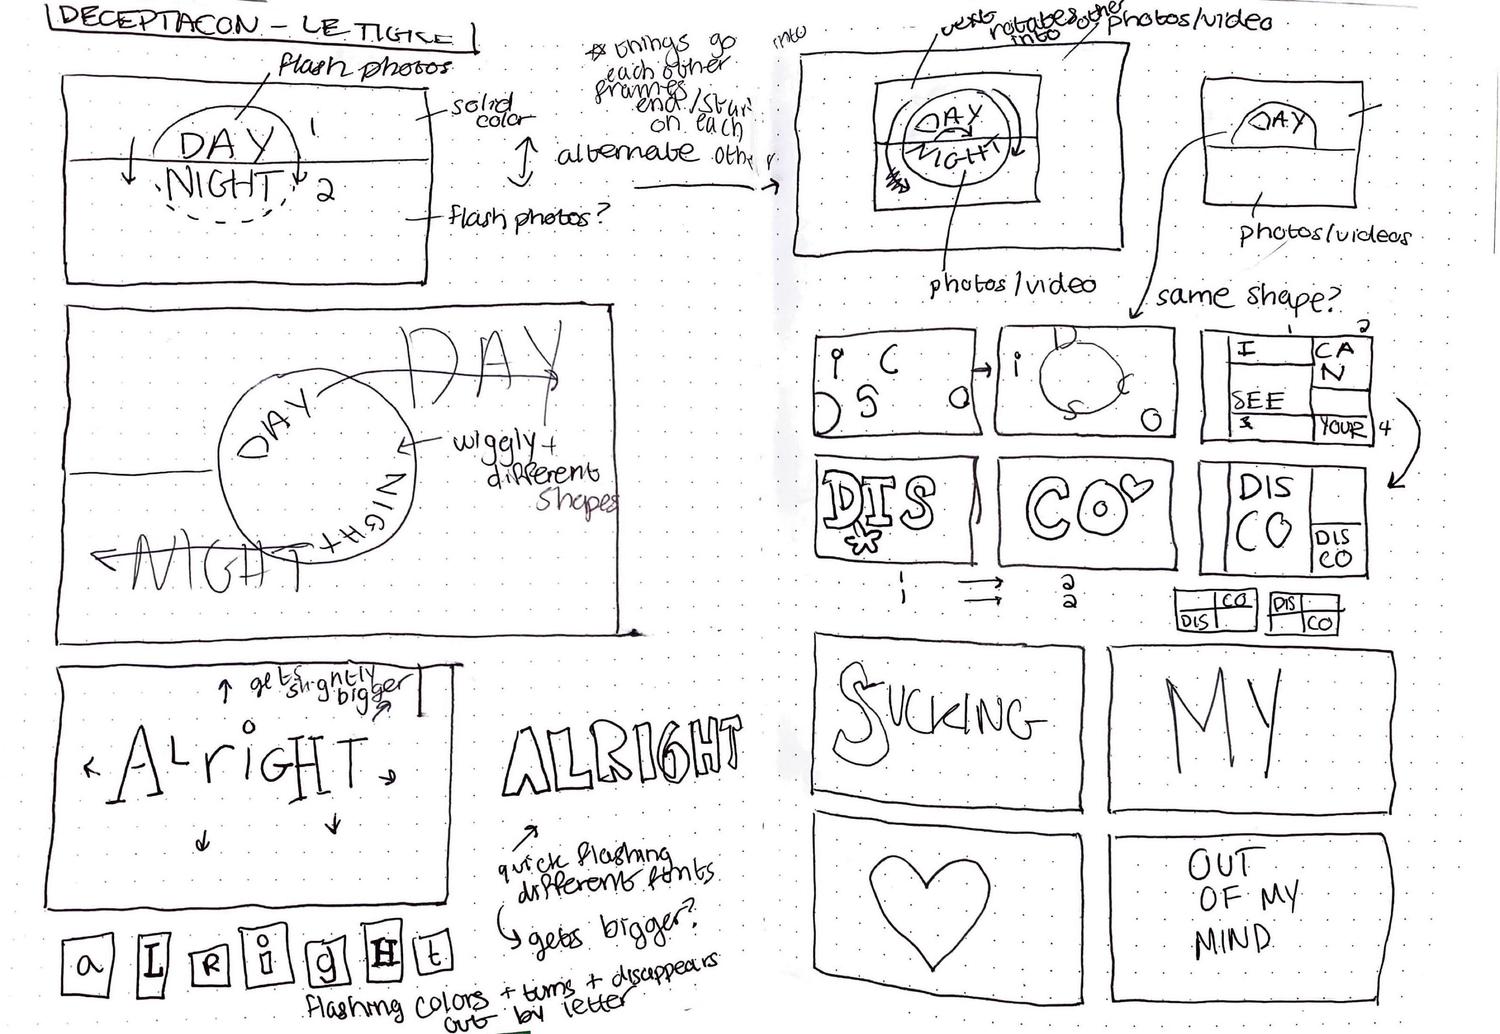 DECEPTACON - LE TIGRE
flash photos
solid
color
DAY
1
NIGHT
2
flash photos?
* things go into
each other
frames
end/start
on each
other
alternate
text rotates
into other
photos/video
DAY
NIGHT
photos/video
DAY
photos/videos
same shape?
DAY
DAY
NIGHT
NIGHT
wiggly +
different
shapes
i C
D S O
i D
C
S O
1 2
I CA
N
SEE
3 YOUR 4
DIS
CO
DIS
CO
DIS
CO
1 2
1 2
CO
DIS
DIS
CO
gets
slightly
bigger
ALriGHT
ALRIGHT
quick flashing
different fonts
gets bigger?
a L R i g H t
flashing colors + turns + disappears
out by letter
SUCKING
MY
OUT
OF MY
MIND